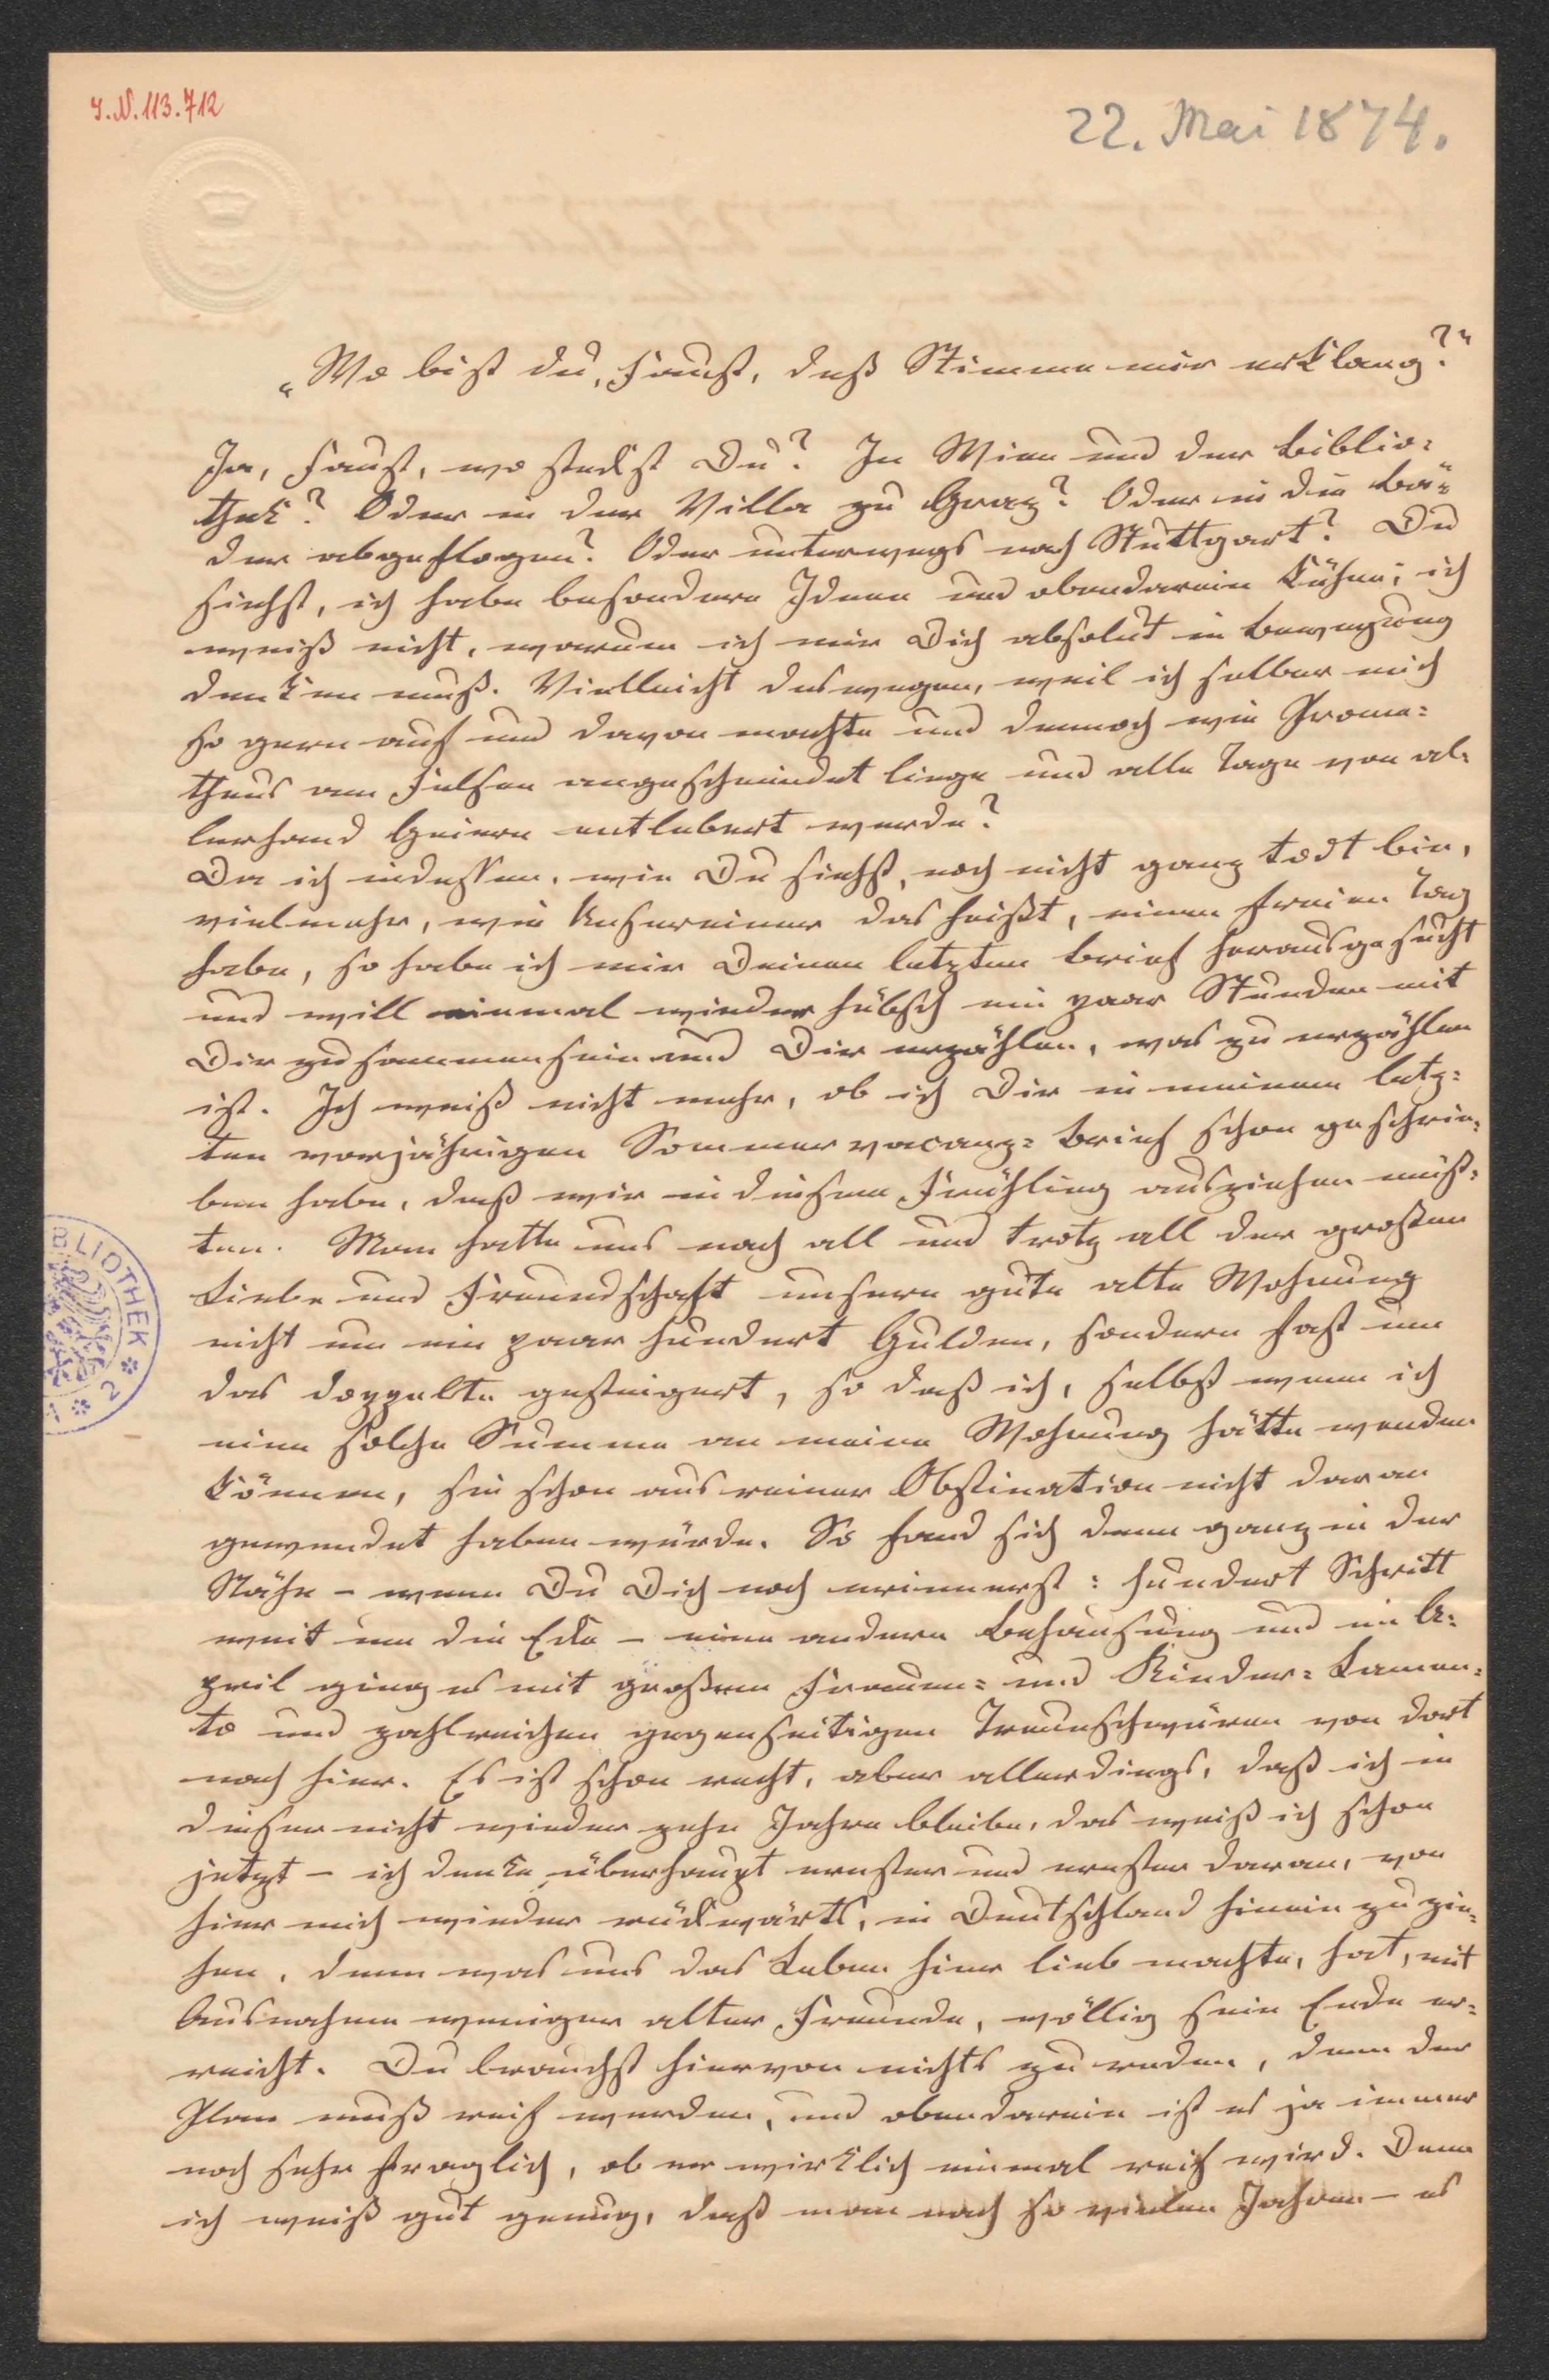 I.N. 113.712
22. Mai 1874.
„Wo bist du, Faust, deß Stimme mir erklang?"
Ja, Faust, wo steckst Du? In Wien und der Biblio-
thek? Oder in der Villa zu Graz? Oder in die Bä-
der abgeflogen? Oder unterwegs nach Stuttgart? Du
siehst, ich habe besondere Ideen und obendarein kühne; ich
weiß nicht, warum ich mir Dich absolut in Bewegung
denken muß. Vielleicht deswegen, weil ich selber mich
so gern auf und davon machte und dennoch wie Prome-
theus am Felsen angeschmiedet liege und alle Tage von al-
lerhand Geiern entlebert werde?
Da ich indessen, wie Du siehst, noch nicht ganz todt bin,
vielmehr, wie Unsereiner das heißt, einen freien Tag
habe, so habe ich mir Deinen letzten Brief herausgesucht
und will einmal wieder hübsch ein paar Stunden mit
Dir zusammensein und Dir erzählen, was zu erzählen
ist. Ich weiß nicht mehr, ob ich Dir in meinem letz-
ten vorjährigen Sommervacanz-Brief schon geschrie-
ben habe, daß wir in diesem Frühling ausziehen müß-
ten. Man hatte uns nach all und trotz all der großen
Liebe und Freundschaft unsere gute alte Wohnung
nicht um ein paar hundert Gulden, sondern fast um
das doppelte gesteigert, so daß ich, selbst wenn ich
eine solche Summe an meine Wohnung hätte wenden
können, sie schon aus reiner Obstination nicht daran
gewendet haben würde. So fand sich denn ganz in der
Nähe – wenn Du Dich noch erinnerst: hundert Schritt
weit um die Ecke – eine andere Behausung und im A-
pril ging es mit großem Frauen- und Kinder-Lamen-
to und zahlreichen gegenseitigen Treueschwüren von dort
nach hier. Es ist schon recht, aber allerdings, daß ich in
dieser nicht wieder zehn Jahre bleibe, das weiß ich schon
jetzt – ich denke überhaupt ernster und ernster daran, von
hier mich wieder rückwärts, in Deutschland hinein zu zie-
hen, denn was uns das Leben hier lieb machte, hat, mit
Ausnahme weniger alter Freunde, völlig sein Ende er-
reicht. Du brauchst hiervon nichts zu reden, denn der
Plan muß reif werden, und obendarein ist es ja immer
noch sehr fraglich, ob er wirklich einmal reif wird. Denn
ich weiß gut genug, daß man nach so vielen Jahren – es
BIBLIOTHEK